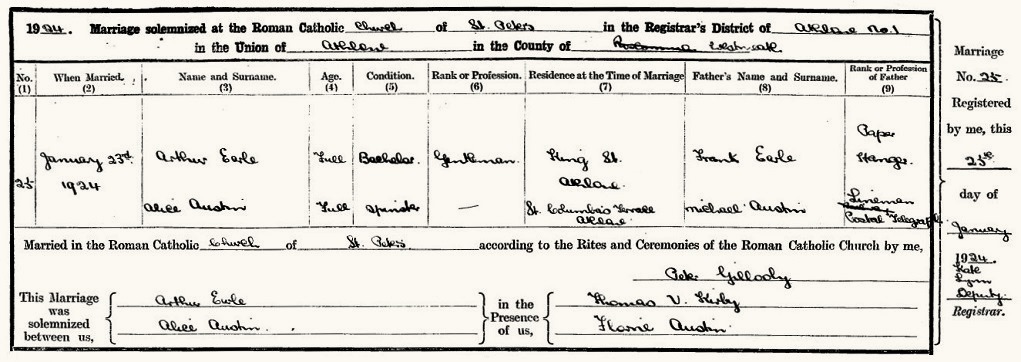 1924. Marriage solemnized at the Roman Catholic Church of St. Peters in the Registrar's District of Athlone No.1
in the Union of Athlone in the County of Roscommon Westmeath
No. (1) When Married. (2) Name and Surname. (3) Age. (4) Condition. (5) Rank or Profession. (6) Residence at the Time of Marriage (7) Father's Name and Surname. (8) Rank or Profession of Father (9)
25 January 23rd 1924 Arthur Earle Full Bachelor. Gentleman. King St. Athlone. Frank Earle Paper Hanger.
Alice Austin Full Spinster — St. Columba's Terrace Athlone Michael Austin Lineman Postal Telegraph
Married in the Roman Catholic Church of St. Peters according to the Rites and Ceremonies of the Roman Catholic Church by me,
Peter Gilloody
This Marriage was solemnized between us,
Arthur Earle
Alice Austin.
in the Presence of us,
Thomas V. Kirby
Florrie Austin
Marriage
No. 25
Registered
by me, this
25th
day of
January
1924.
Kate
Lynn
Deputy
Registrar.